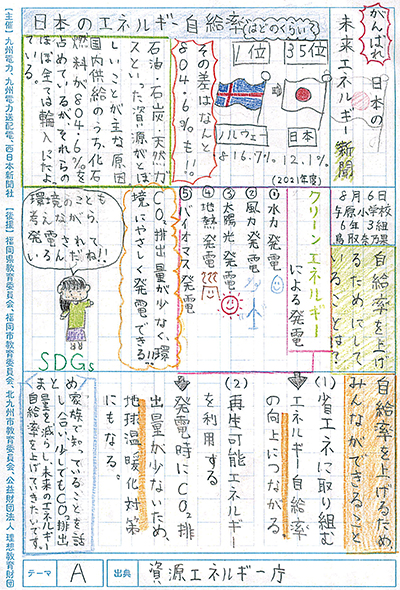 がんばれ
日本の
未来エネルギー新聞
8月6日
与原小学校
6年3組
鳥取奈乃果
日本のエネルギー自給率
はどのくらい?
35位
日本
12.1%
1位
ノルウェー
816.7%
(2021年度)
その差はなんと
804.6%も!!
石油・石炭・天然ガ
スといった資源がとぼ
しいことが主な原因
国内供給のうち、化石
燃料が804.6%を
占めているが、それらの
ほぼ全ては輸入にたよっ
ている。
自給率を上げ
るためにして
いることは?
クリーンエネルギー
による発電
①水力発電
②風力発電
③太陽光発電
④地熱発電
⑤バイオマス発電
CO₂排出量が少なく、環
境にやさしく発電できる!!
環境のことも
考えながら、
発電されて
いるんだね!!
SDGs
自給率を上げるため
みんなができること
(1)省エネに取り組む
エネルギー自給率
の向上につながる
(2)再生可能エネルギー
を利用する
発電時にCO₂排
出量が少ないため、
地球温暖化対策
にもなる。
まとめ
家族で知っていることを話
し合い、少しでもCO₂排出
量を減らし、未来のエネルギー
自給率を上げていきたいです。
テーマ
A
出典
資源エネルギー庁
【主催】九州電力、九州電力送配電、西日本新聞社
【後援】福岡県教育委員会、福岡市教育委員会、北九州市教育委員会、公益財団法人 理想教育財団